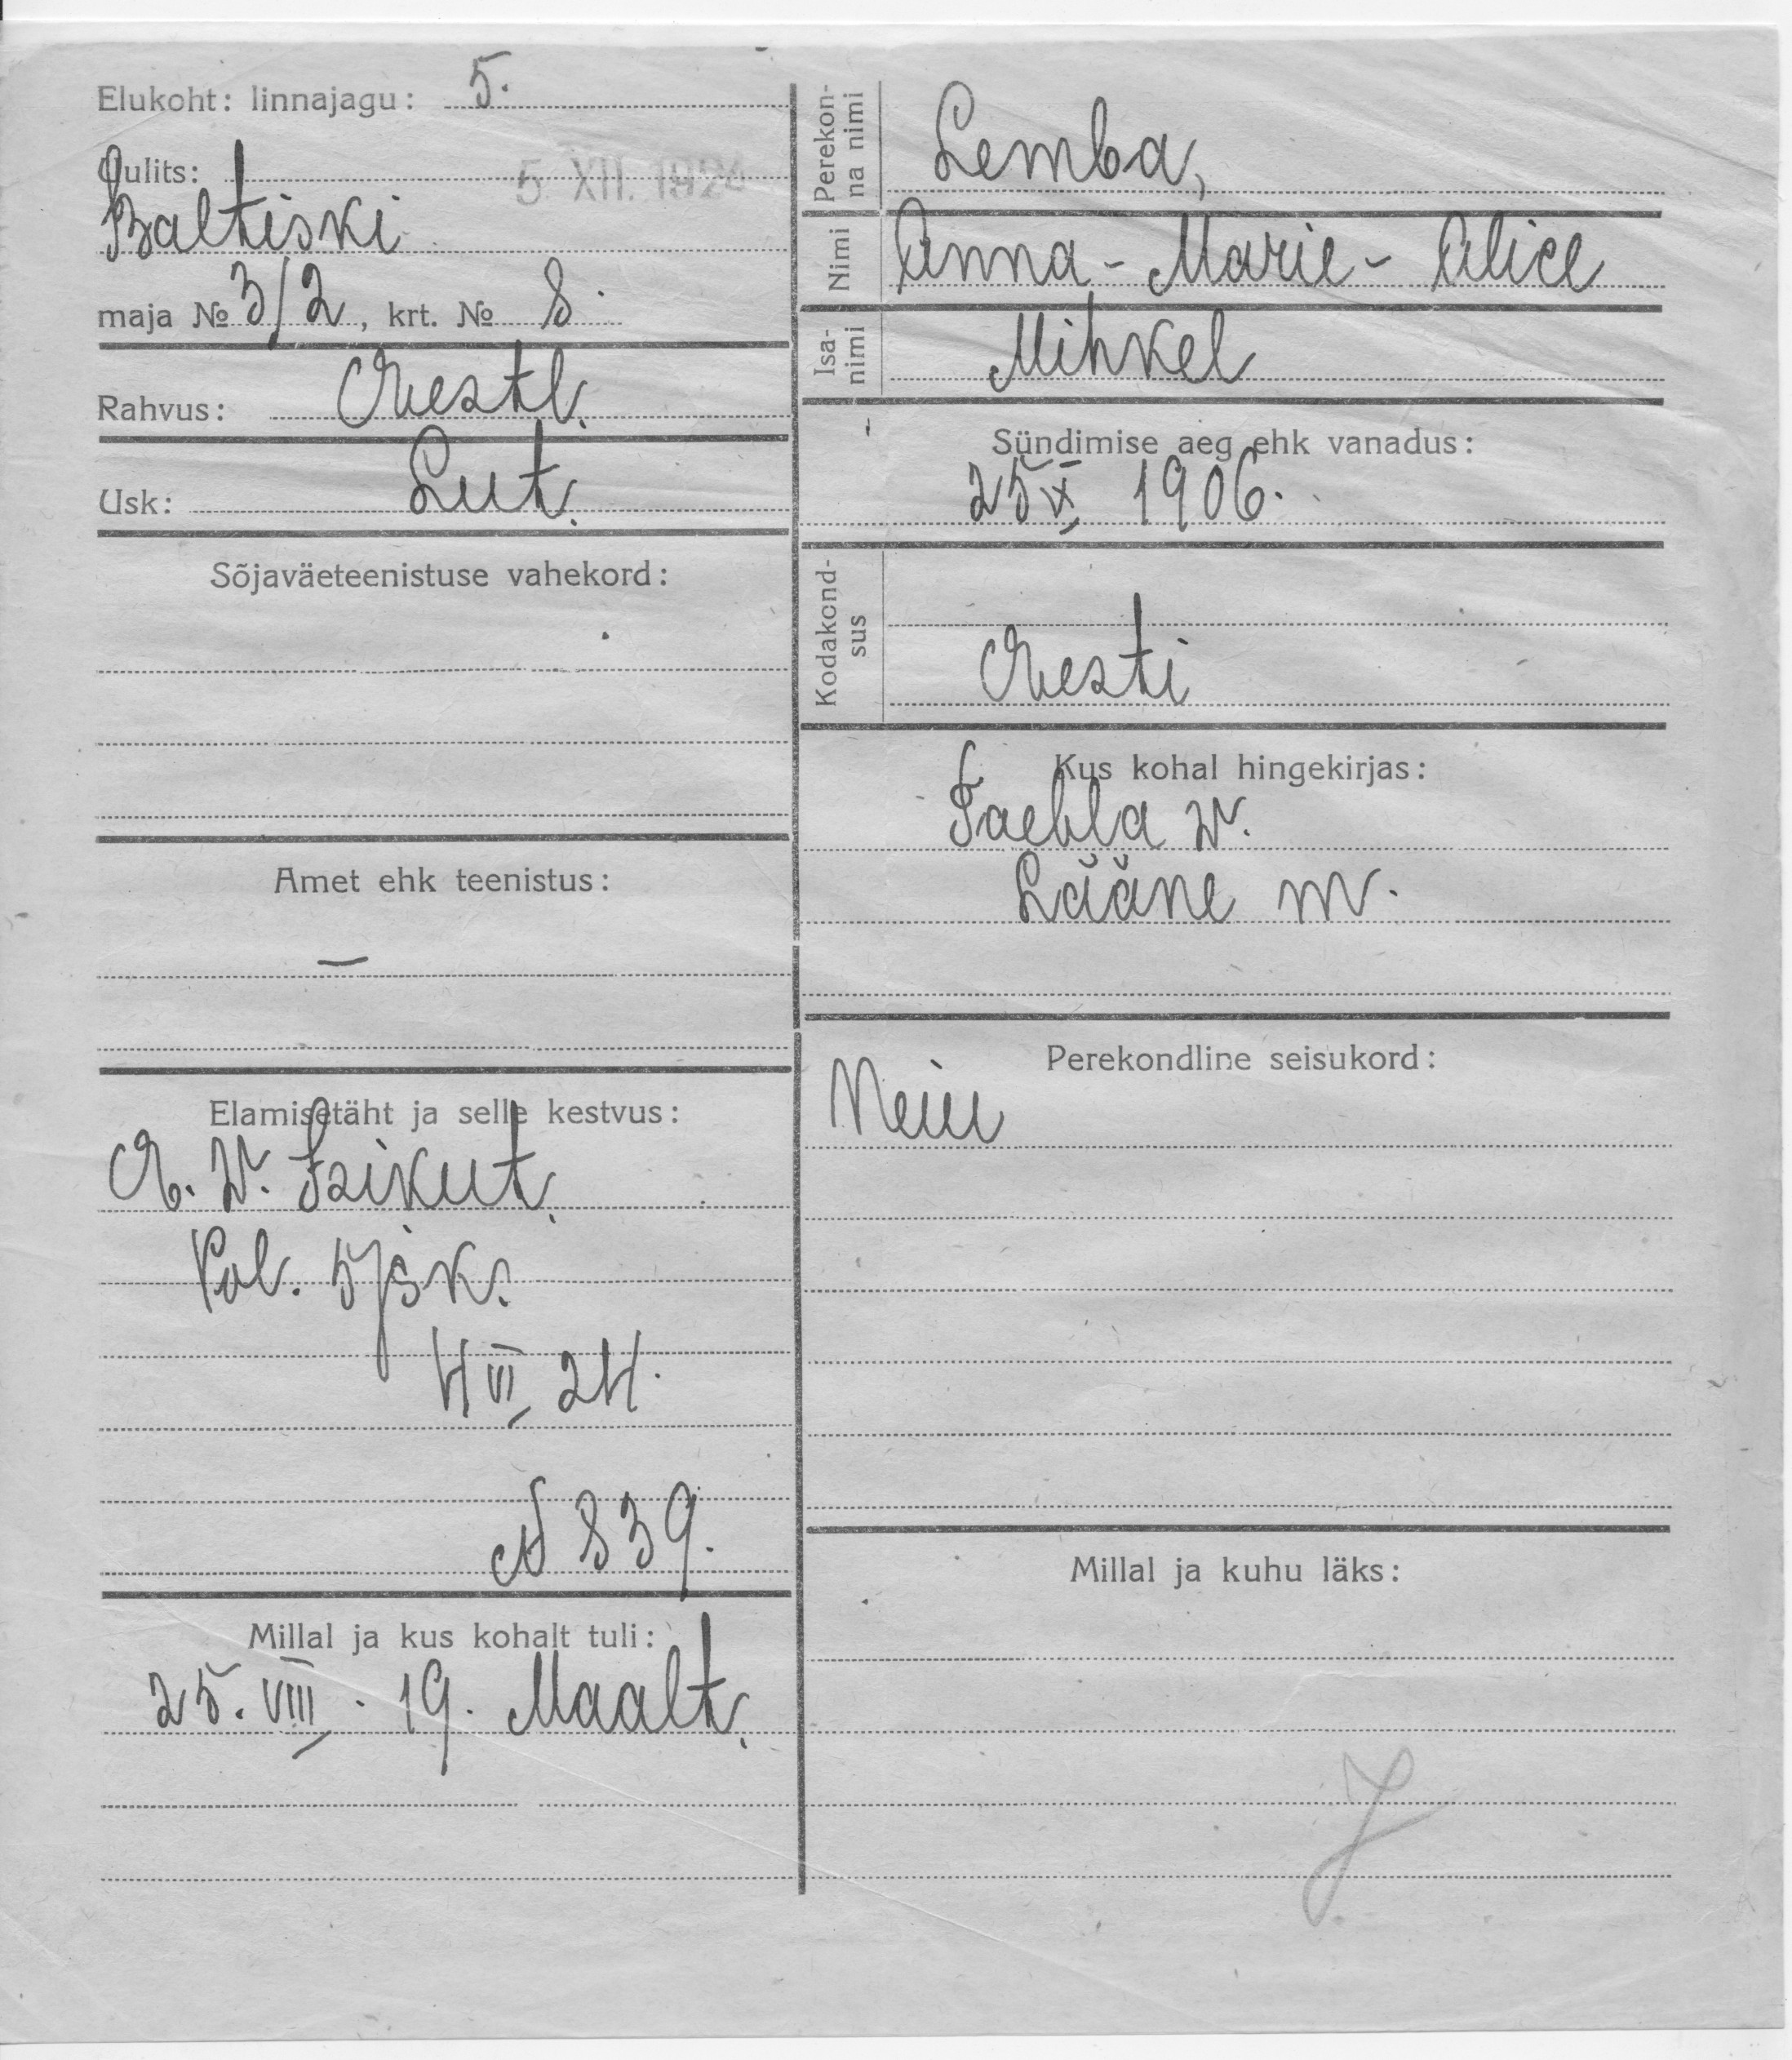 Elukoht: linnajagu: 5.
Uulits:
5 XII. 1924
Baltiski
maja № 3/2, krt. № 8.
Rahvus: Eestl.
Usk: Lut.
Sõjaväeteenistuse vahekord:
Amet ehk teenistus:
—
Elamisetäht ja selle kestvus:
E. W. Isikut.
Pol. 5 jsk.
4 VI 24.
N 839.
Millal ja kus kohalt tuli:
25. VIII. 19. Maalt.
Perekon-
na nimi
Lemba,
Nimi
Anna - Marie - Alice
Isa-
nimi
Mihkel
Sündimise aeg ehk vanadus:
25 IX 1906.
Kodakond-
sus
Eesti
Kus kohal hingekirjas:
Taebla w.
Lääne m.
Perekondline seisukord:
Neiu
Millal ja kuhu läks: